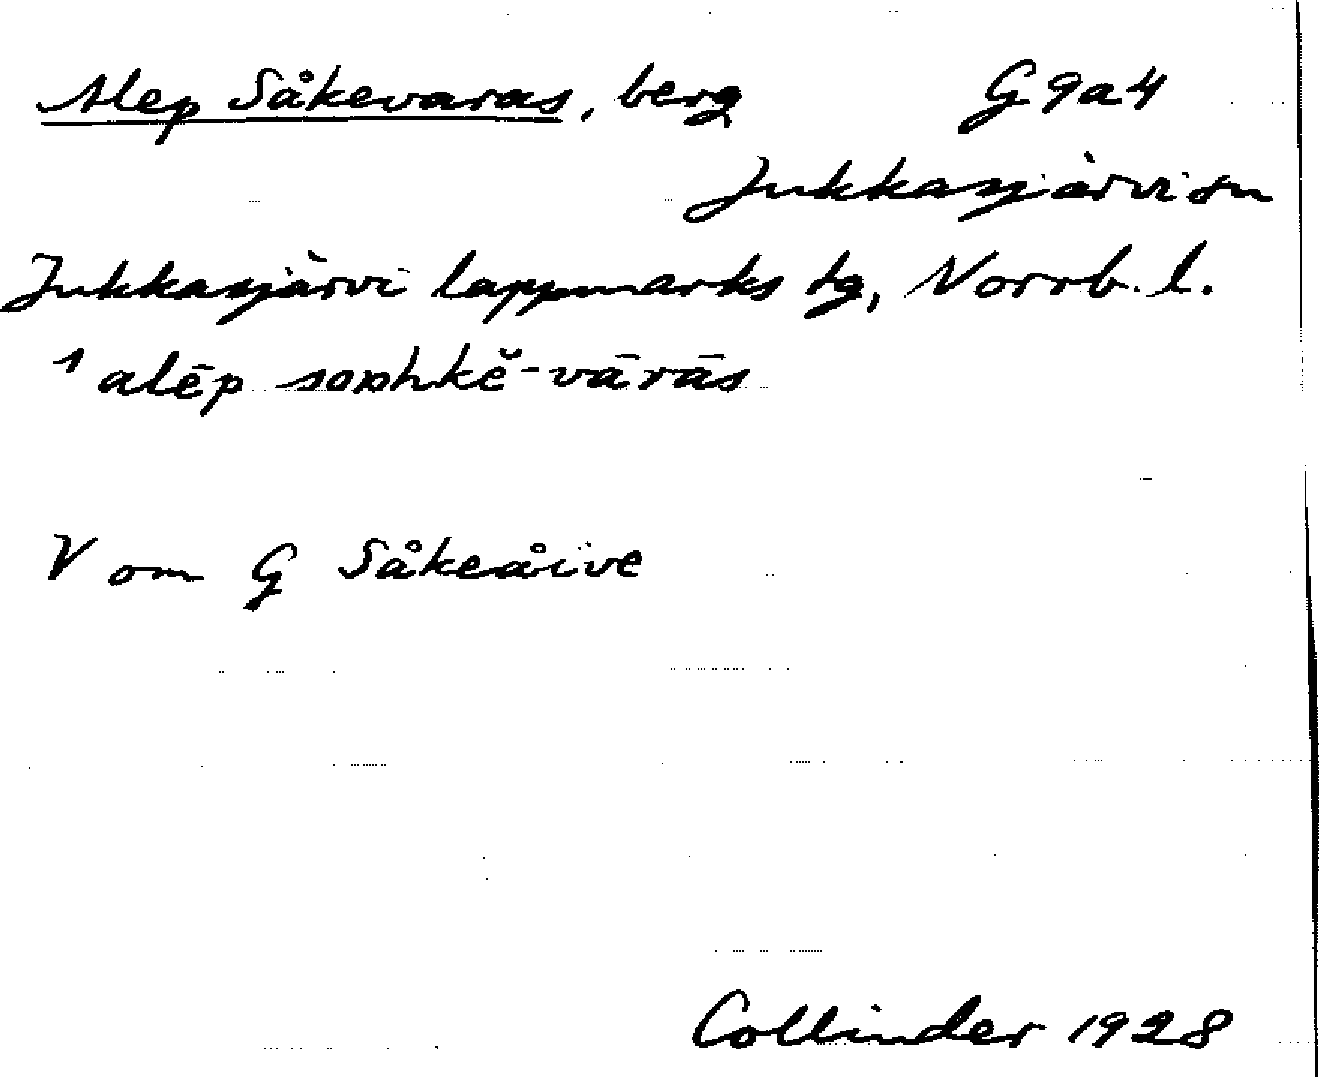 Alep Såkevaras, berg G9a4
Jukkasjärvi sn
Jukkasjärvi lappmarks tg, Norrb. l.
1 alēp sophkĕ-vārās
V om G Såkeåive
Collinder 1928